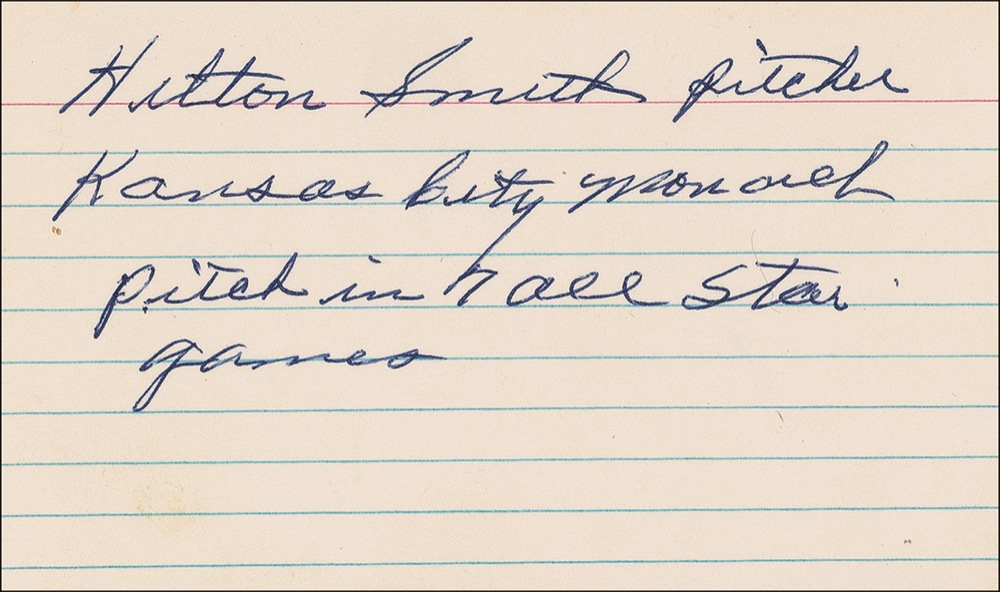 Hilton Smith pitcher
Kansas City Monarch
pitch in 7 all Star
games